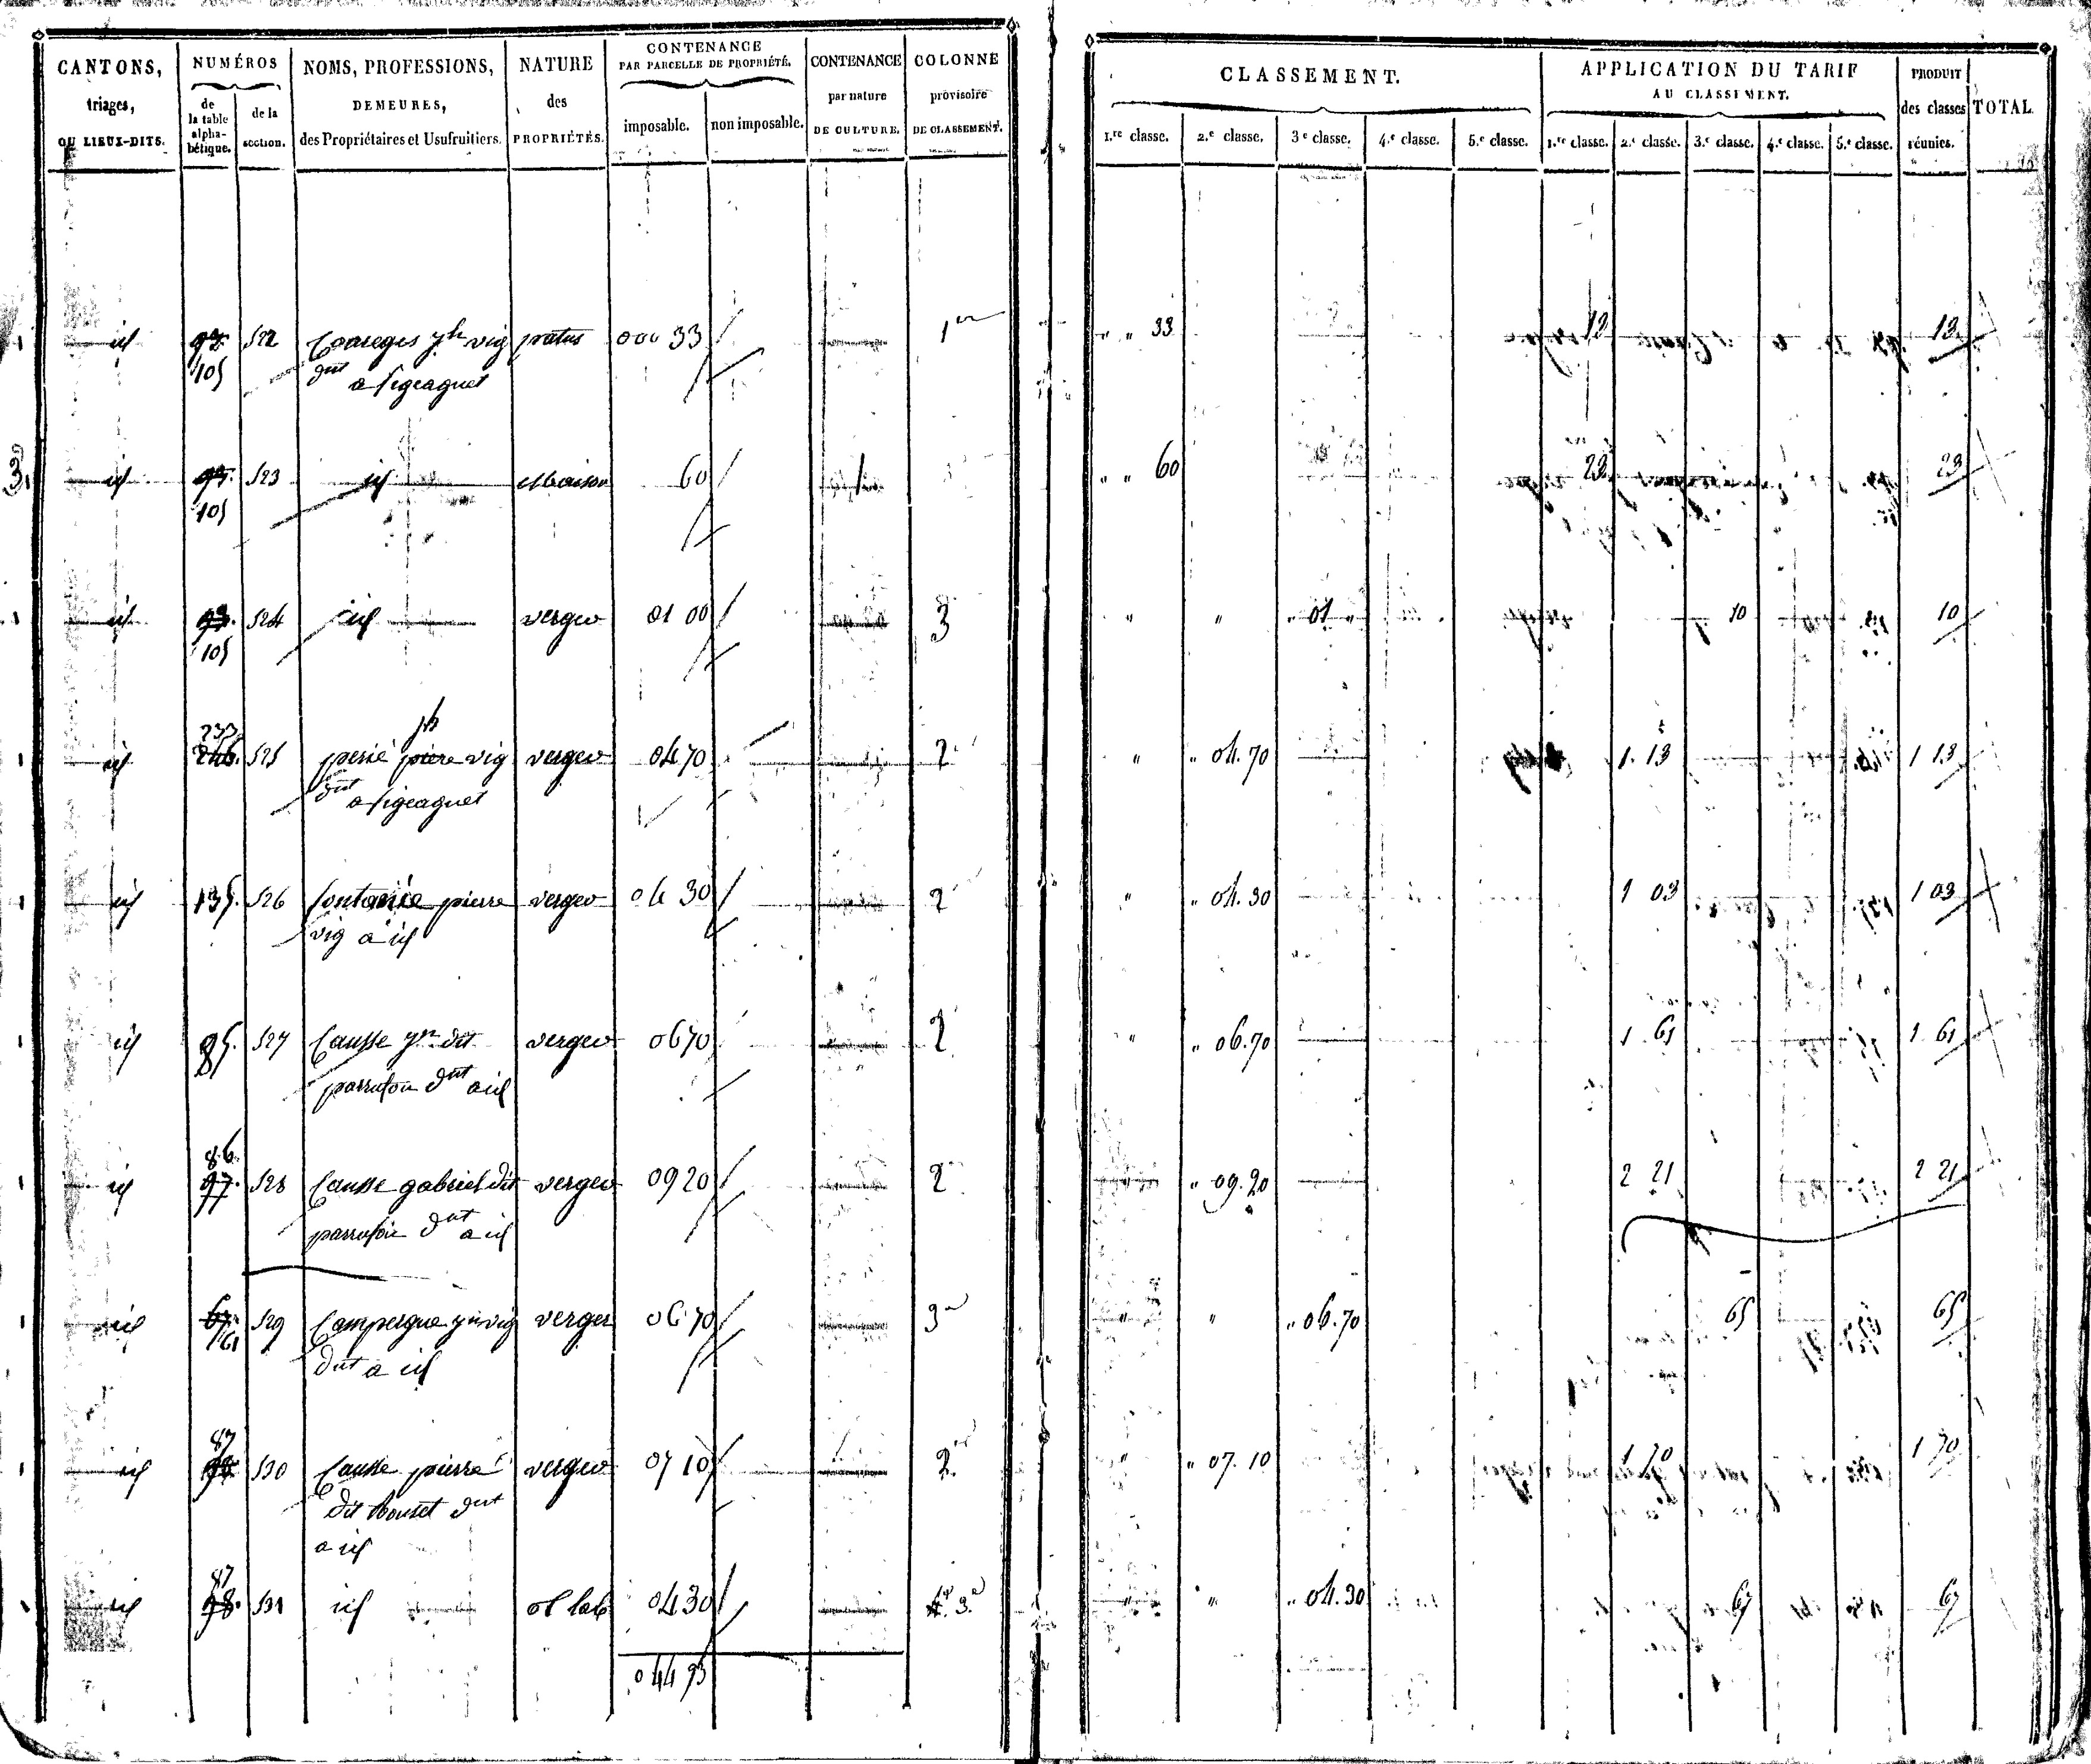 CANTONS, triages, OU LIEUX-DITS. NUMÉROS de la table alpha-bétique. de la section. NOMS, PROFESSIONS, DEMEURES, des Propriétaires et Usufruitiers. NATURE des PROPRIÉTÉS. CONTENANCE PAR PARCELLE DE PROPRIÉTÉ. imposable. non imposable. CONTENANCE par nature DE CULTURE. COLONNE provisoire DE CLASSEMENT. CLASSEMENT. 1.re classe. 2.e classe. 3e classe. 4.e classe. 5.e classe. APPLICATION DU TARIF AU CLASSEMENT. 1.re classe. 2.e classe. 3.e classe. 4.e classe. 5.e classe. PRODUIT des classes réunies. TOTAL.
id 105 522 vig patus 000 33 1er " " 33 13 13
dnt
a figeaguet
id 105 523 id Maison 60 " " 60 23 23
id 105 524 id verger 01 00 3 " " " 01 " 10 10
233
id 246. 525 perié pierre vig verger 04 70 2 " " 04.70 1. 13 1 13
dnt
a figeaguet
id 135. 526 fontanié pierre verger 04 30 2 " " 04.30 1 03 1 03
vig a id
id 85. 527 Causse dit verger 06 70 2 " " 06.70 1 61 1 61
dnt a id
86
id 97. 528 Causse gabriel dit verger 09 20 2 " 09.20 2 21 2 21
dnt a id
id 61 529 Campergue vig verger 06 70 3e " " " 06.70 65 65
dnt a id
87
id 98 530 Causse pierre verger 07 10 2 " " 07.10 1 70 1 70
dit dnt
a id
87
id 98. 531 id 04 30 3e " " " 04.30 67 67
0 44 93